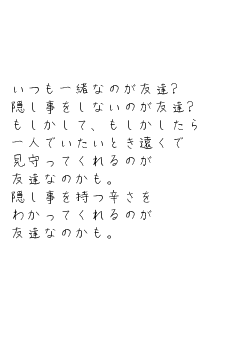 いつも一緒なのが友達?
隠し事をしないのが友達?
もしかして、もしかしたら
一人でいたいとき遠くで
見守ってくれるのが
友達なのかも。
隠し事を持つ辛さを
わかってくれるのが
友達なのかも。